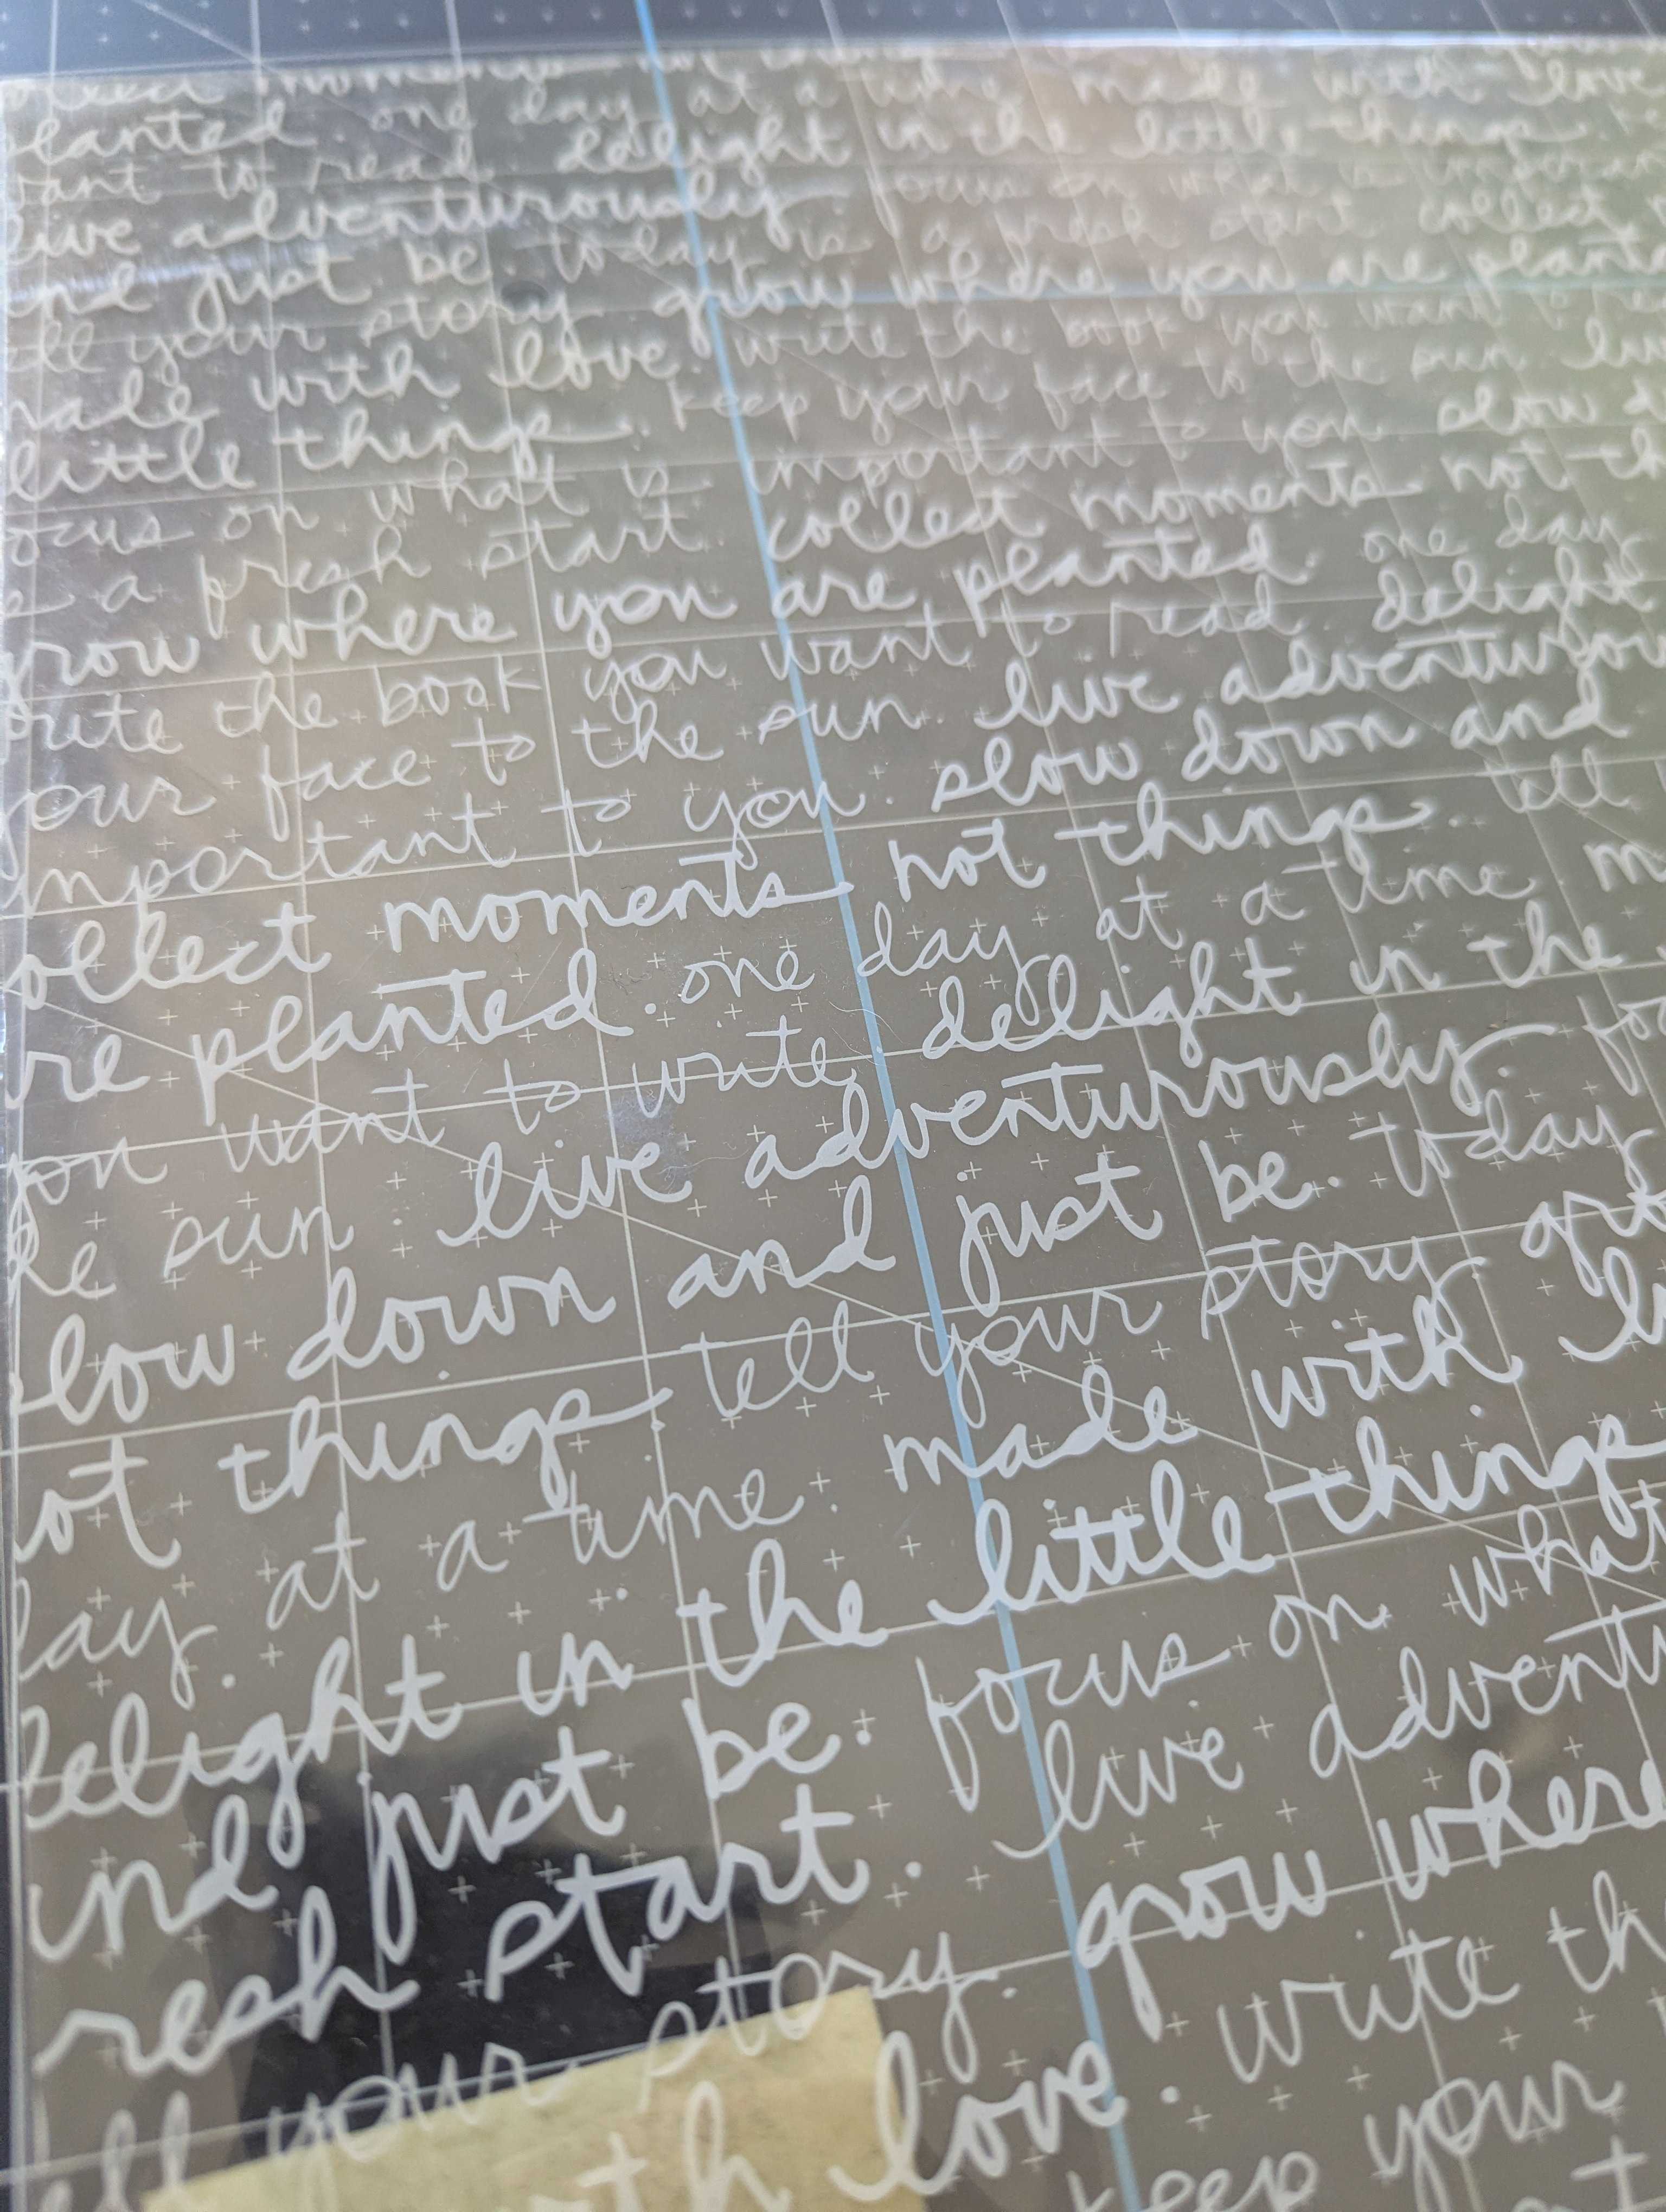 moments
planted. one day at a time made with love
want to read. delight in the little things.
live adventurously. focus on what is
and just be. today is a fresh start. collect
your story. grow where you are
made with love. write the book you want to
little things. keep your face to the sun.
focus on what is important to you. slow
a fresh start. collect moments not
grow where you are planted. one day
write the book you want to read. delight
your face to the sun. live
important to you. slow down and
ollect moments not things. tell
re planted. one day at a time
you want to write delight in the
sun. live adventurously.
low down and just be. today
ot things. tell your story
day at a time. made with
elight in the little things
and just be. focus on what
resh start. live
your story. grow where
love. write
keep your